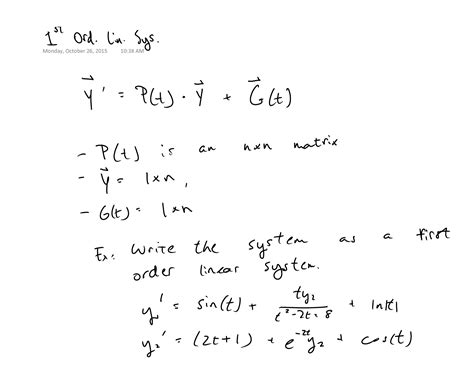 1st Ord. Lin. Sys.
Monday, October 26, 2015 10:38 AM
Y⃗' = P(t) · Y⃗ + G⃗(t)
- P(t) is an nxn matrix
- Y⃗ = 1xn,
- G(t) = 1xn
Ex: Write the system as a first
order linear system.
y₁' = sin(t) + ty₂/(t²-2t+8) + ln|t|
y₂' = (2t+1) + e⁻²ᵗy₂ + cos(t)